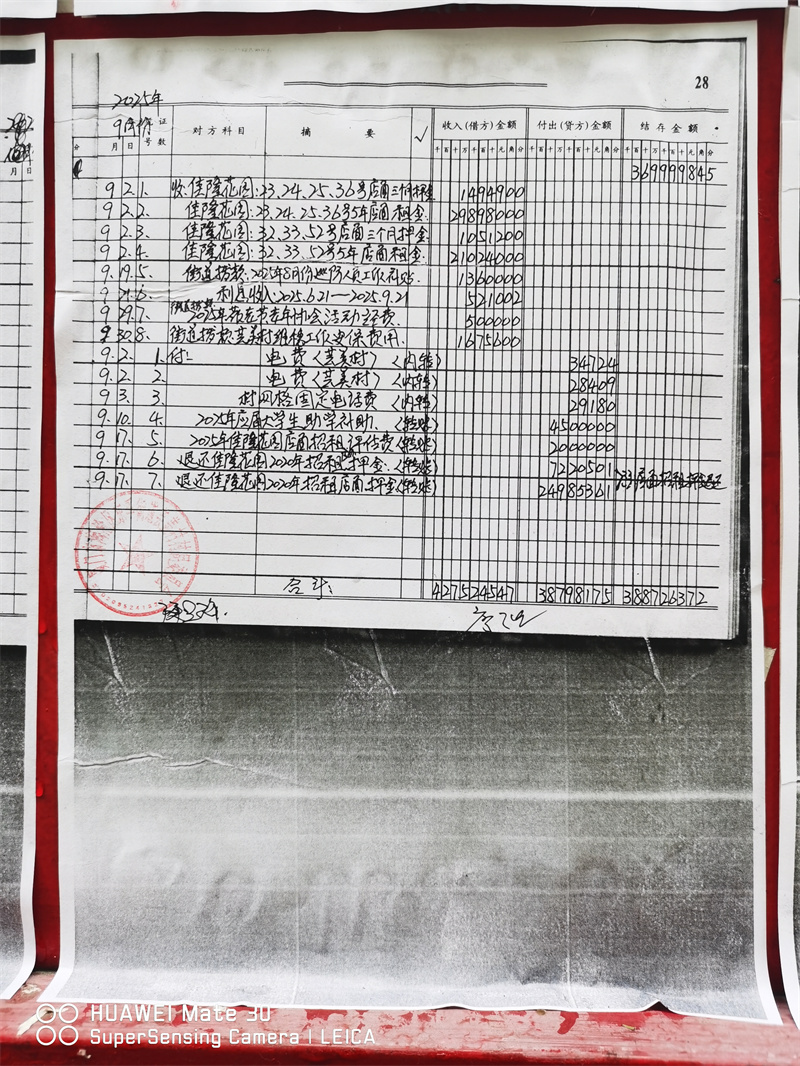 28
2025年
9月份
月 日 证 号 数 对 方 科 目 摘 要 √ 收入(借方)金额 付出(贷方)金额 结 存 金 额
千百十万千百十元角分 千百十万千百十元角分 千百十万千百十元角分
369999845
9 2. 1. 收: 佳隆花园:23、24、25、36号店面三个月押金 1494900
9 2. 2. 佳隆花园:23.24.25.36号5年店面租金. 29898000
9 2. 3. 佳隆花园:32.33.52号店面三个月押金 1051200
9 2. 4. 佳隆花园:32.33.52号5年店面租金. 21024000
9. 19. 5. 街道拨款:2025年8月份巡防人员工作补贴. 1360000
9 21. 6. 利息收入:2025.6.21—2025.9.21 521002
9 29. 7. 街道拨款 2025年 老年协会活动经费. 500000
9. 30. 8. 街道拨款: 工作 费用. 1675600
9. 2. 1. 付: 电费(芸美村)(内转) 34724
9. 2 2. 电费(芸美村)(内转) 28409
9 3. 3. 村网格固定电话费 (内转) 29180
9. 10. 4. 2025年应届大学生助学补助. (转账) 4500000
9. 17. 5. 2025年佳隆花园店面招租评估费(转账) 2000000
9. 17. 6. 退还佳隆花园2020年招租 押金.(转账) 7220501
9. 17. 7. 退还佳隆花园2020年招租店面押金(转账) 24985361
合计: 427524547 38798175 388726372
HUAWEI Mate 30
SuperSensing Camera | LEICA